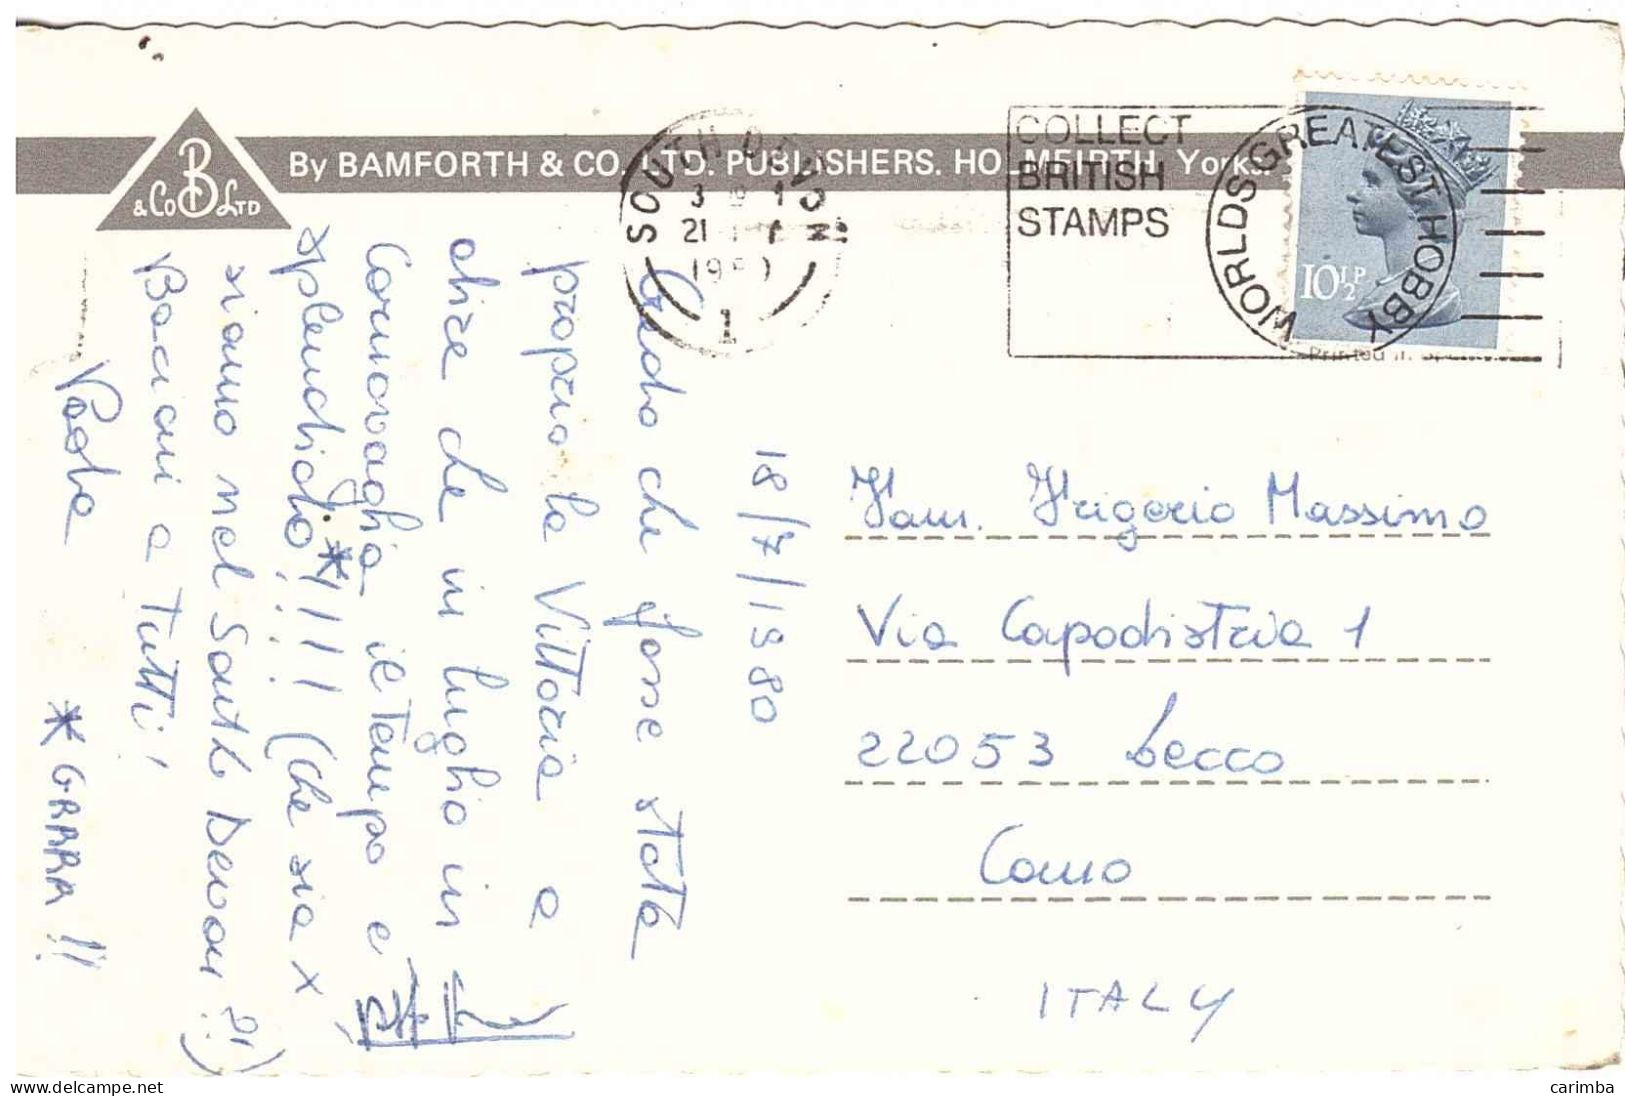 By BAMFORTH & CO. LTD. PUBLISHERS. HOLMFIRTH, Yorks.
B
& Co LTD
SOUTH DEVON
21
1980
1
COLLECT
BRITISH
STAMPS
WORLDS GREATEST HOBBY
10½P
Printed in
18/7/1980
Credo che fosse stata
proprio la Vittoria a
dire che in luglio in
Cornovaglia il tempo è
splendido!*!!!! (che sia x
siamo nel South Devon?!)
Bacioni a tutti!
Paola
* GRRRR!!
Fam. Frigerio Massimo
Via Capodistria 1
22053 Lecco
Como
ITALY
carimba